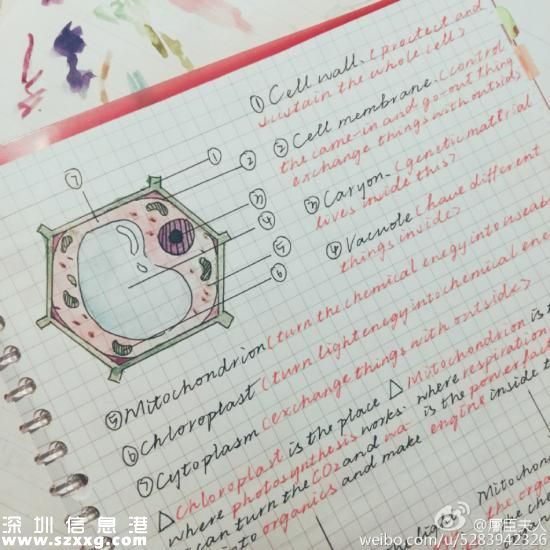 ① Cell wall. (proctect and
sustain the whole cell)
② Cell membrane. (control
the came-in and go-out thing
exchange things with outside)
③ Caryon. (genetic mattrial
lives inside this)
④ Vacuole (have different
things inside)
⑤ Mitochondrion (turn the chemical enegy into useable
⑥ Chloroplast (turn light enegy into chemical ene
⑦ Cytoplasm (exchange things with outside)
△ Chloroplast is the place
where photosynthesis works.
can turn the CO2 and wa
into organics and make
△ Mitochondrion is t
where respiration
is the powerful
engine inside t
Mitochond
the orga
the che
⑦
①
②
③
④
⑤
⑥
深圳信息港
www.szxxg.com
@屠臣夫人
weibo.com/u/5283942326